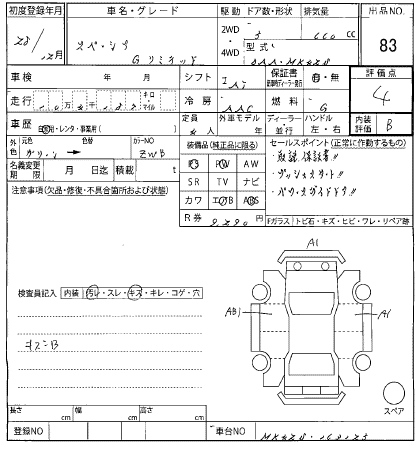 初度登録年月 車名・グレード 駆動 ドア数・形状 排気量 出品NO.
28/12月 スペーシア 2WD 5 660cc 83
Gリミテッド 4WD 型式 DAA-MK42S
車検 年 月 シフト IAT 保証書 有・無 評価点
走行 キロ マイル 冷房 AAC 燃料 G 4
車歴 自家用・レンタ・事業用( ) 定員 4人 外車モデル 年 ディーラー 並行 ハンドル 左・右 内装評価 B
外色 元色 グリーン 色替 カラーNO ZWB 装備品(純正品に限る) セールスポイント(正常に作動するもの)
名義変更期限 月 日迄 積載 t PS PW AW ・取説保証書!!
注意事項(欠品・修復・不具合箇所および状態) SR TV ナビ ・プッシュスタート!!
カワ エアB ABS ・パワースライドドア!!
R券 9,290 Fガラス トビ石・キズ・ヒビ・ワレ・リペア跡
A1
検査員記入 内装 汚レ・スレ・キズ・キレ・コゲ・穴
AB1 A1
キズB
スペア
長さ cm 幅 cm 高さ cm
登録NO 車台NO MK42S-162123